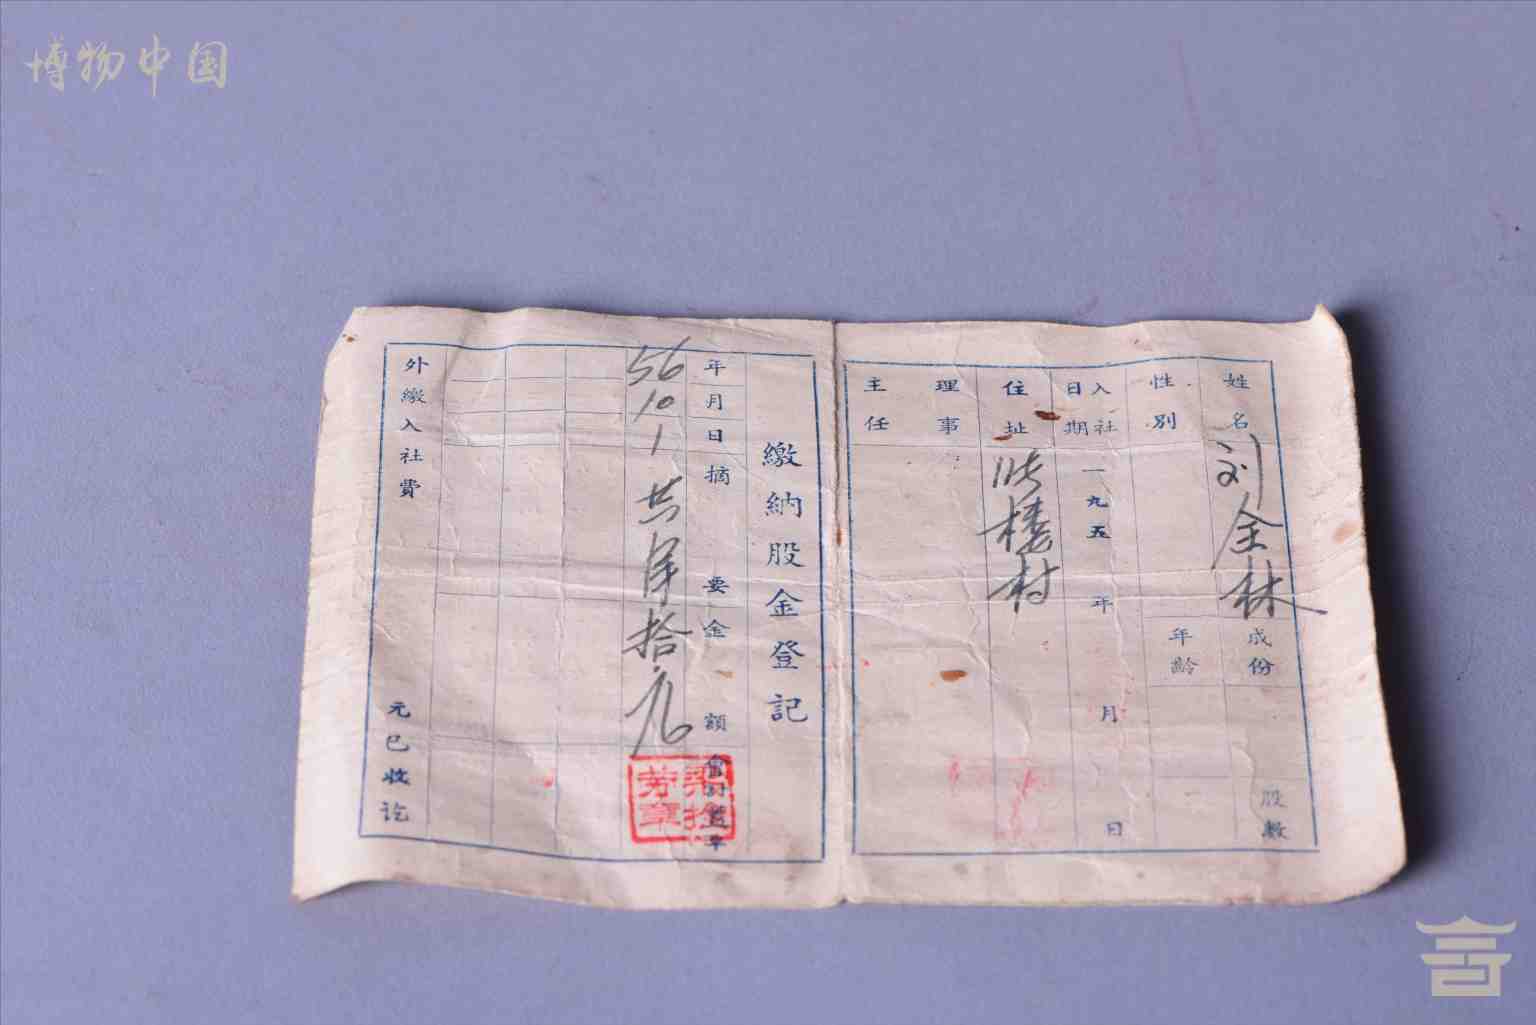 博物中国
姓名
刘全林
成份
股數
性別
年齡
入社日期
一九五 年 月 日
住址
楼村
理事
主任
繳納股金登記
年月日
摘要
金額
會計蓋章
56 10 1
拾元
外繳入社費 元已收訖